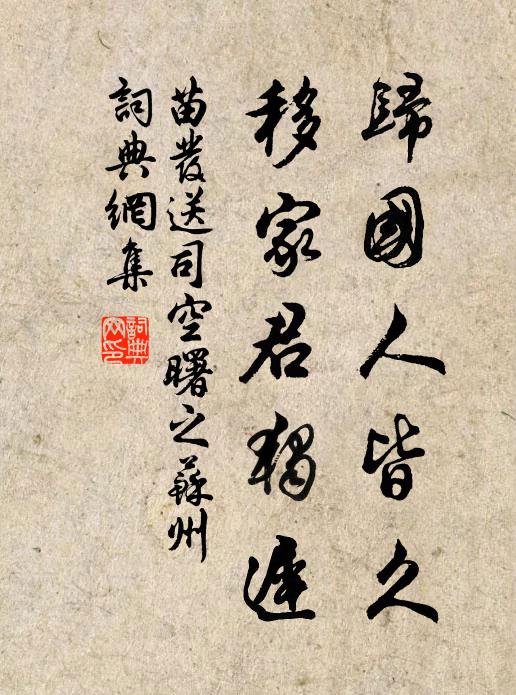 歸國人皆久
移家君獨遲
苗發送司空曙之蘇州
詞典網集
詞典網印